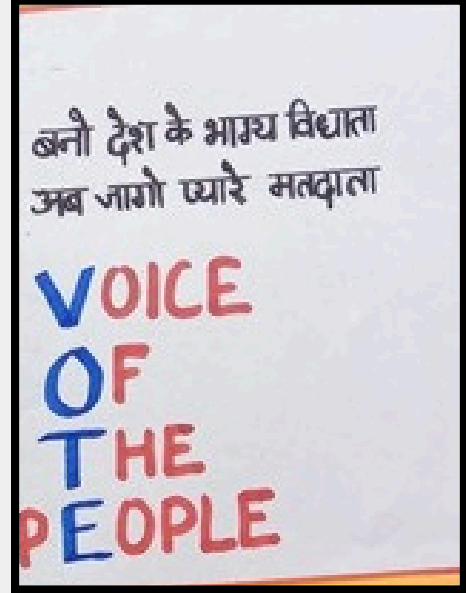 बनो देश के भाग्य विधाता
अब जागो प्यारे मतदाता
VOICE
OF
THE
PEOPLE